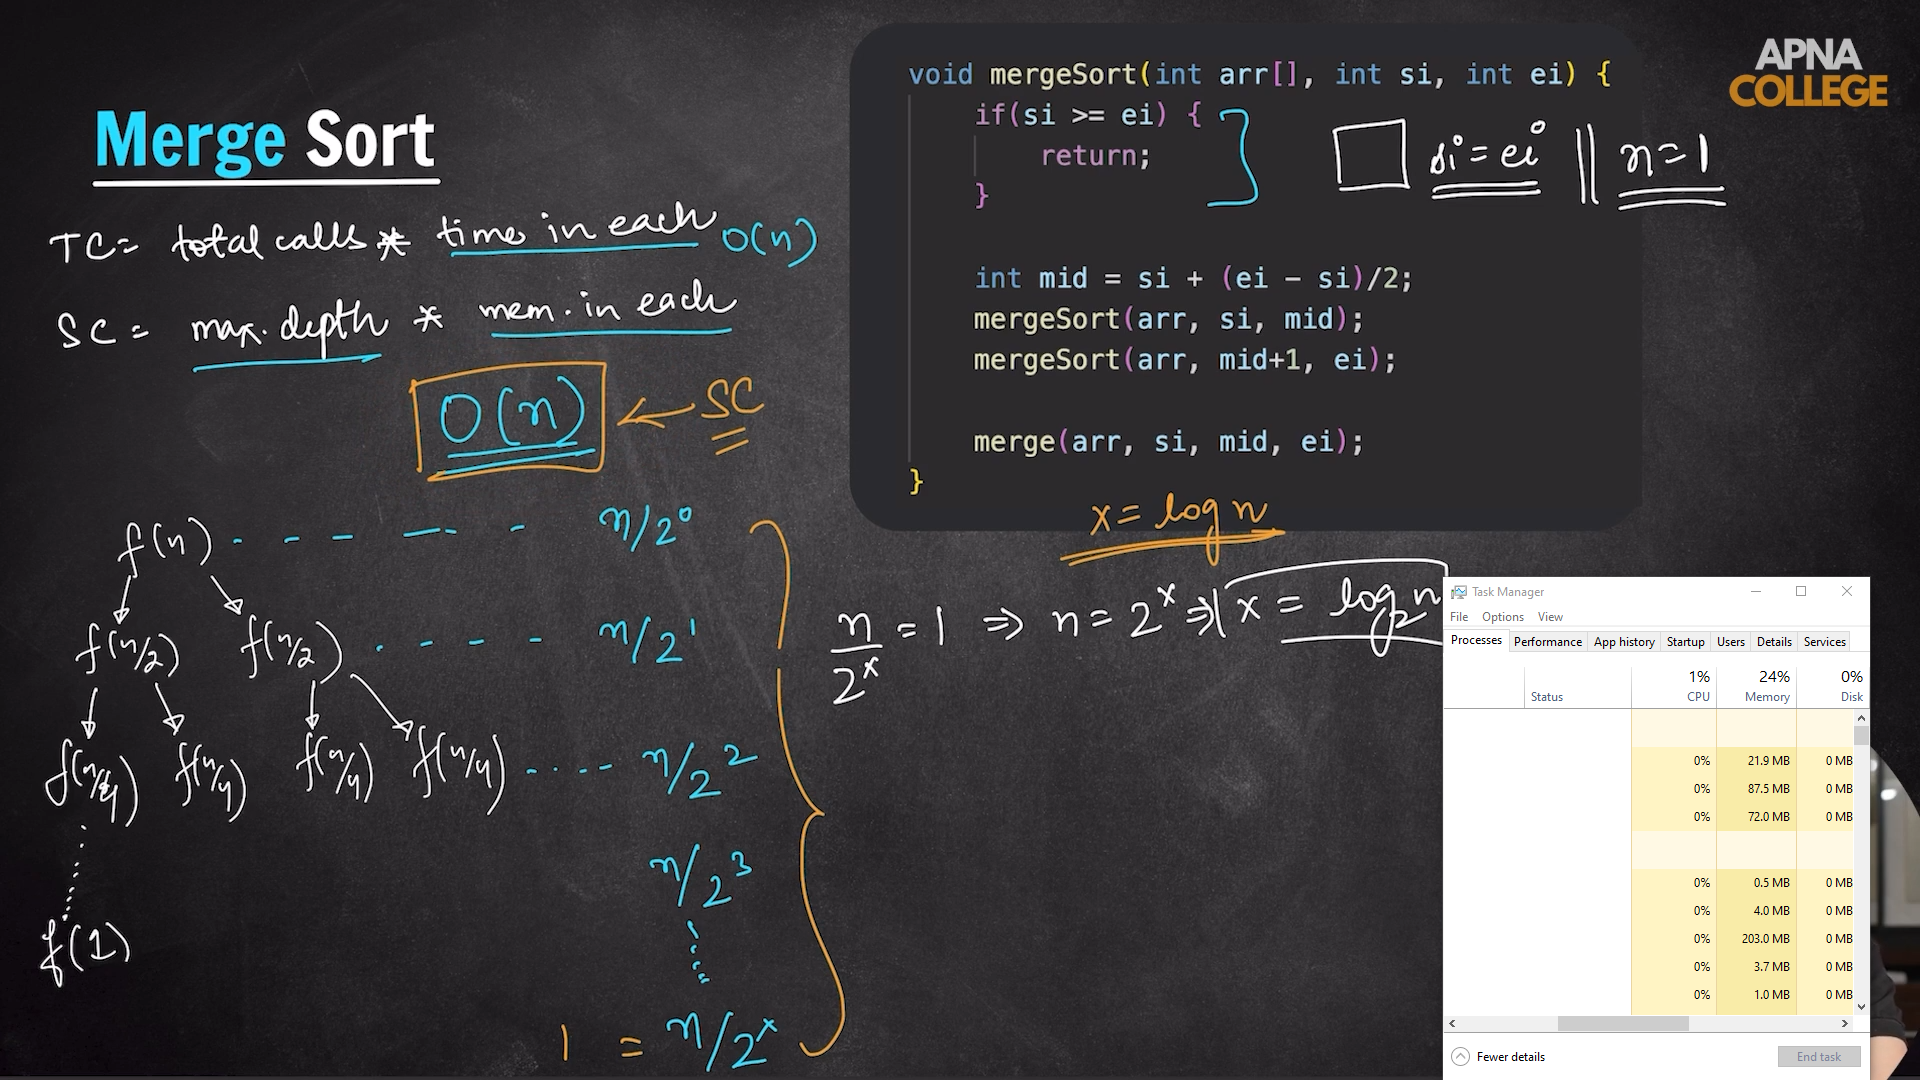 APNA
COLLEGE
Merge Sort
TC = total calls * time in each O(n)
SC = max. depth * mem. in each
O(n) ← SC
void mergeSort(int arr[], int si, int ei) {
if(si >= ei) {
return;
}
int mid = si + (ei - si)/2;
mergeSort(arr, si, mid);
mergeSort(arr, mid+1, ei);
merge(arr, si, mid, ei);
}
si = ei || n=1
x = log n
f(n) - - - - - n/2⁰
f(n/2) f(n/2) - - - - n/2¹
f(n/4) f(n/4) f(n/4) f(n/4) - - - - n/2²
n/2³
f(1)
1 = n/2ˣ
n/2ˣ = 1 ⇒ n = 2ˣ ⇒ x = log₂n
Task Manager
File Options View
Processes Performance App history Startup Users Details Services
1% 24% 0%
Status CPU Memory Disk
0% 21.9 MB 0 MB
0% 87.5 MB 0 MB
0% 72.0 MB 0 MB
0% 0.5 MB 0 MB
0% 4.0 MB 0 MB
0% 203.0 MB 0 MB
0% 3.7 MB 0 MB
0% 1.0 MB 0 MB
Fewer details End task